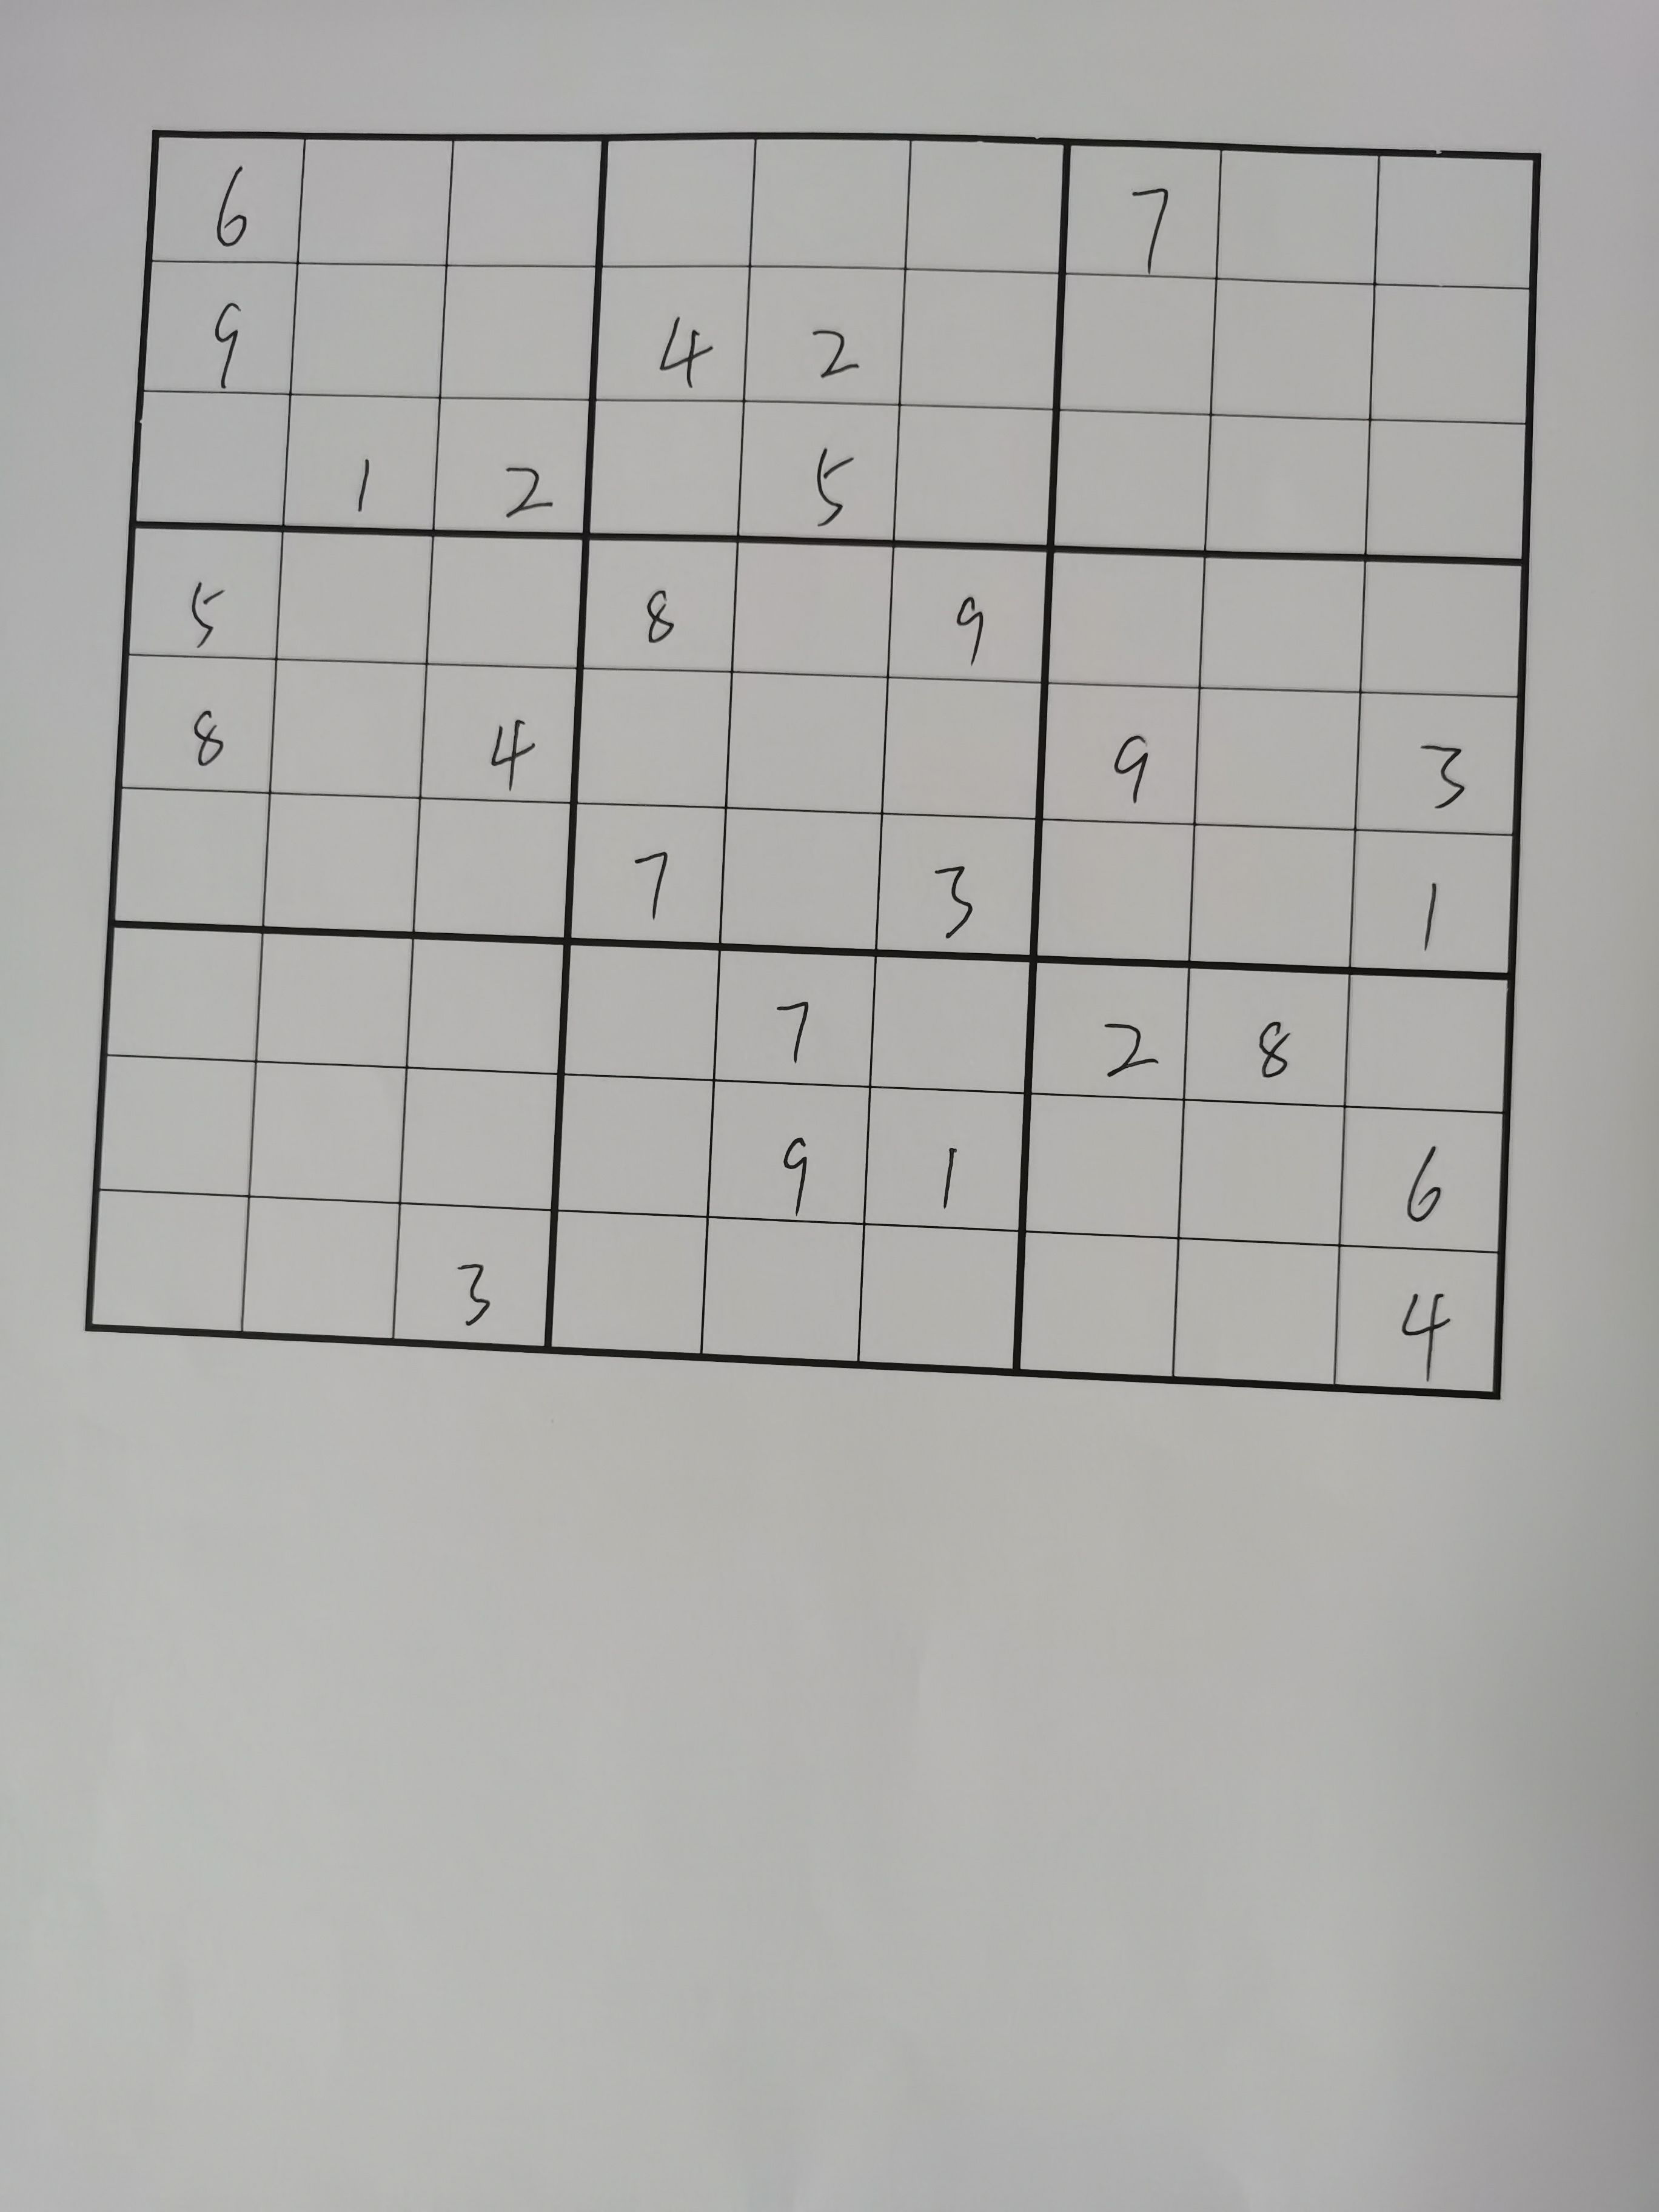 6 7
9 4 2
1 2 5
5 8 9
8 4 9 3
7 3 1
7 2 8
9 1 6
3 4